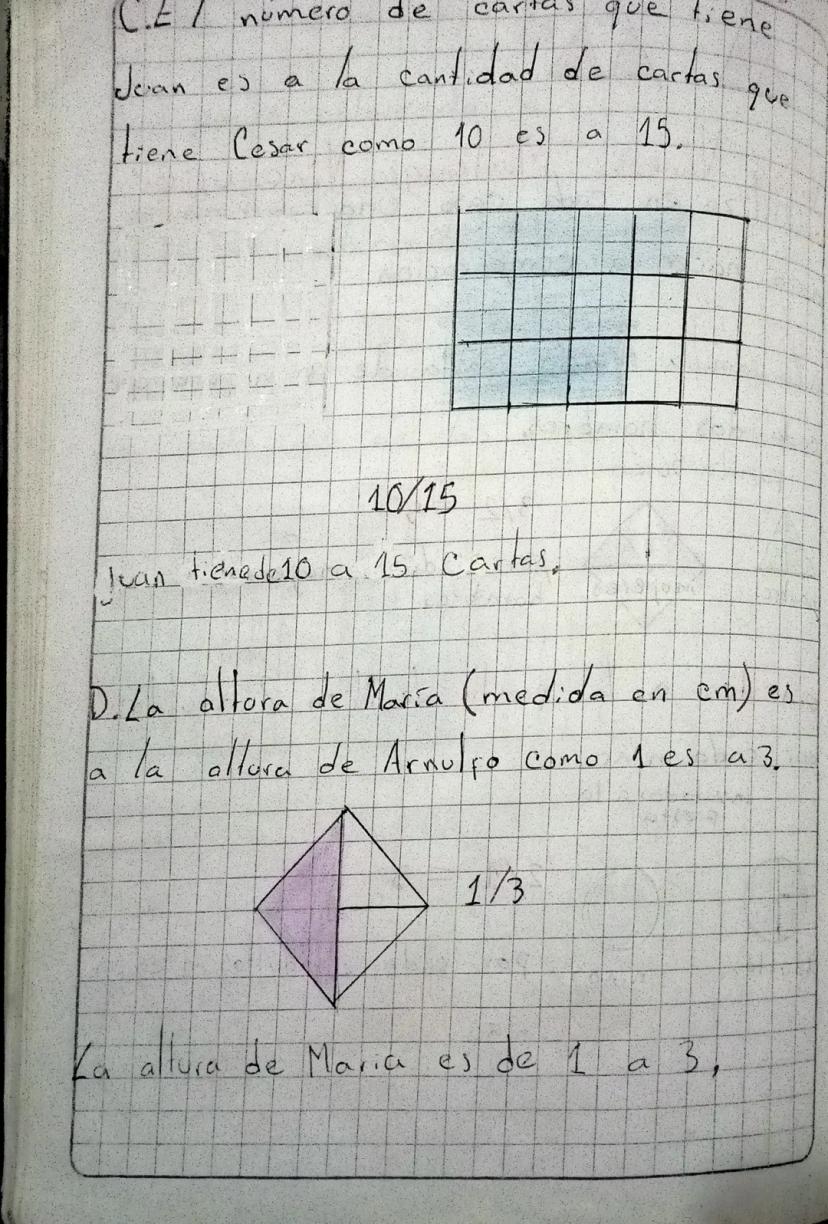 C. El número de cartas que tiene
Juan es a la cantidad de cartas que
tiene Cesar como 10 es a 15.
10/15
Juan tienede10 a 15 Cartas.
D. La altura de María (medida en cm) es
a la altura de Arnulfo como 1 es a 3.
1/3
La altura de Maria es de 1 a 3,